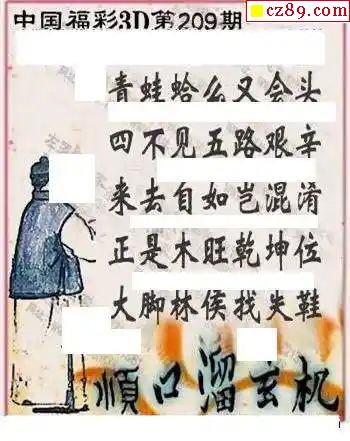 cz89.com
中国福彩3D第209期
青蛙蛤么又会头
四不见五路艰辛
来去自如岂混淆
正是木旺乾坤位
大脚林侯找失鞋
顺口溜玄机